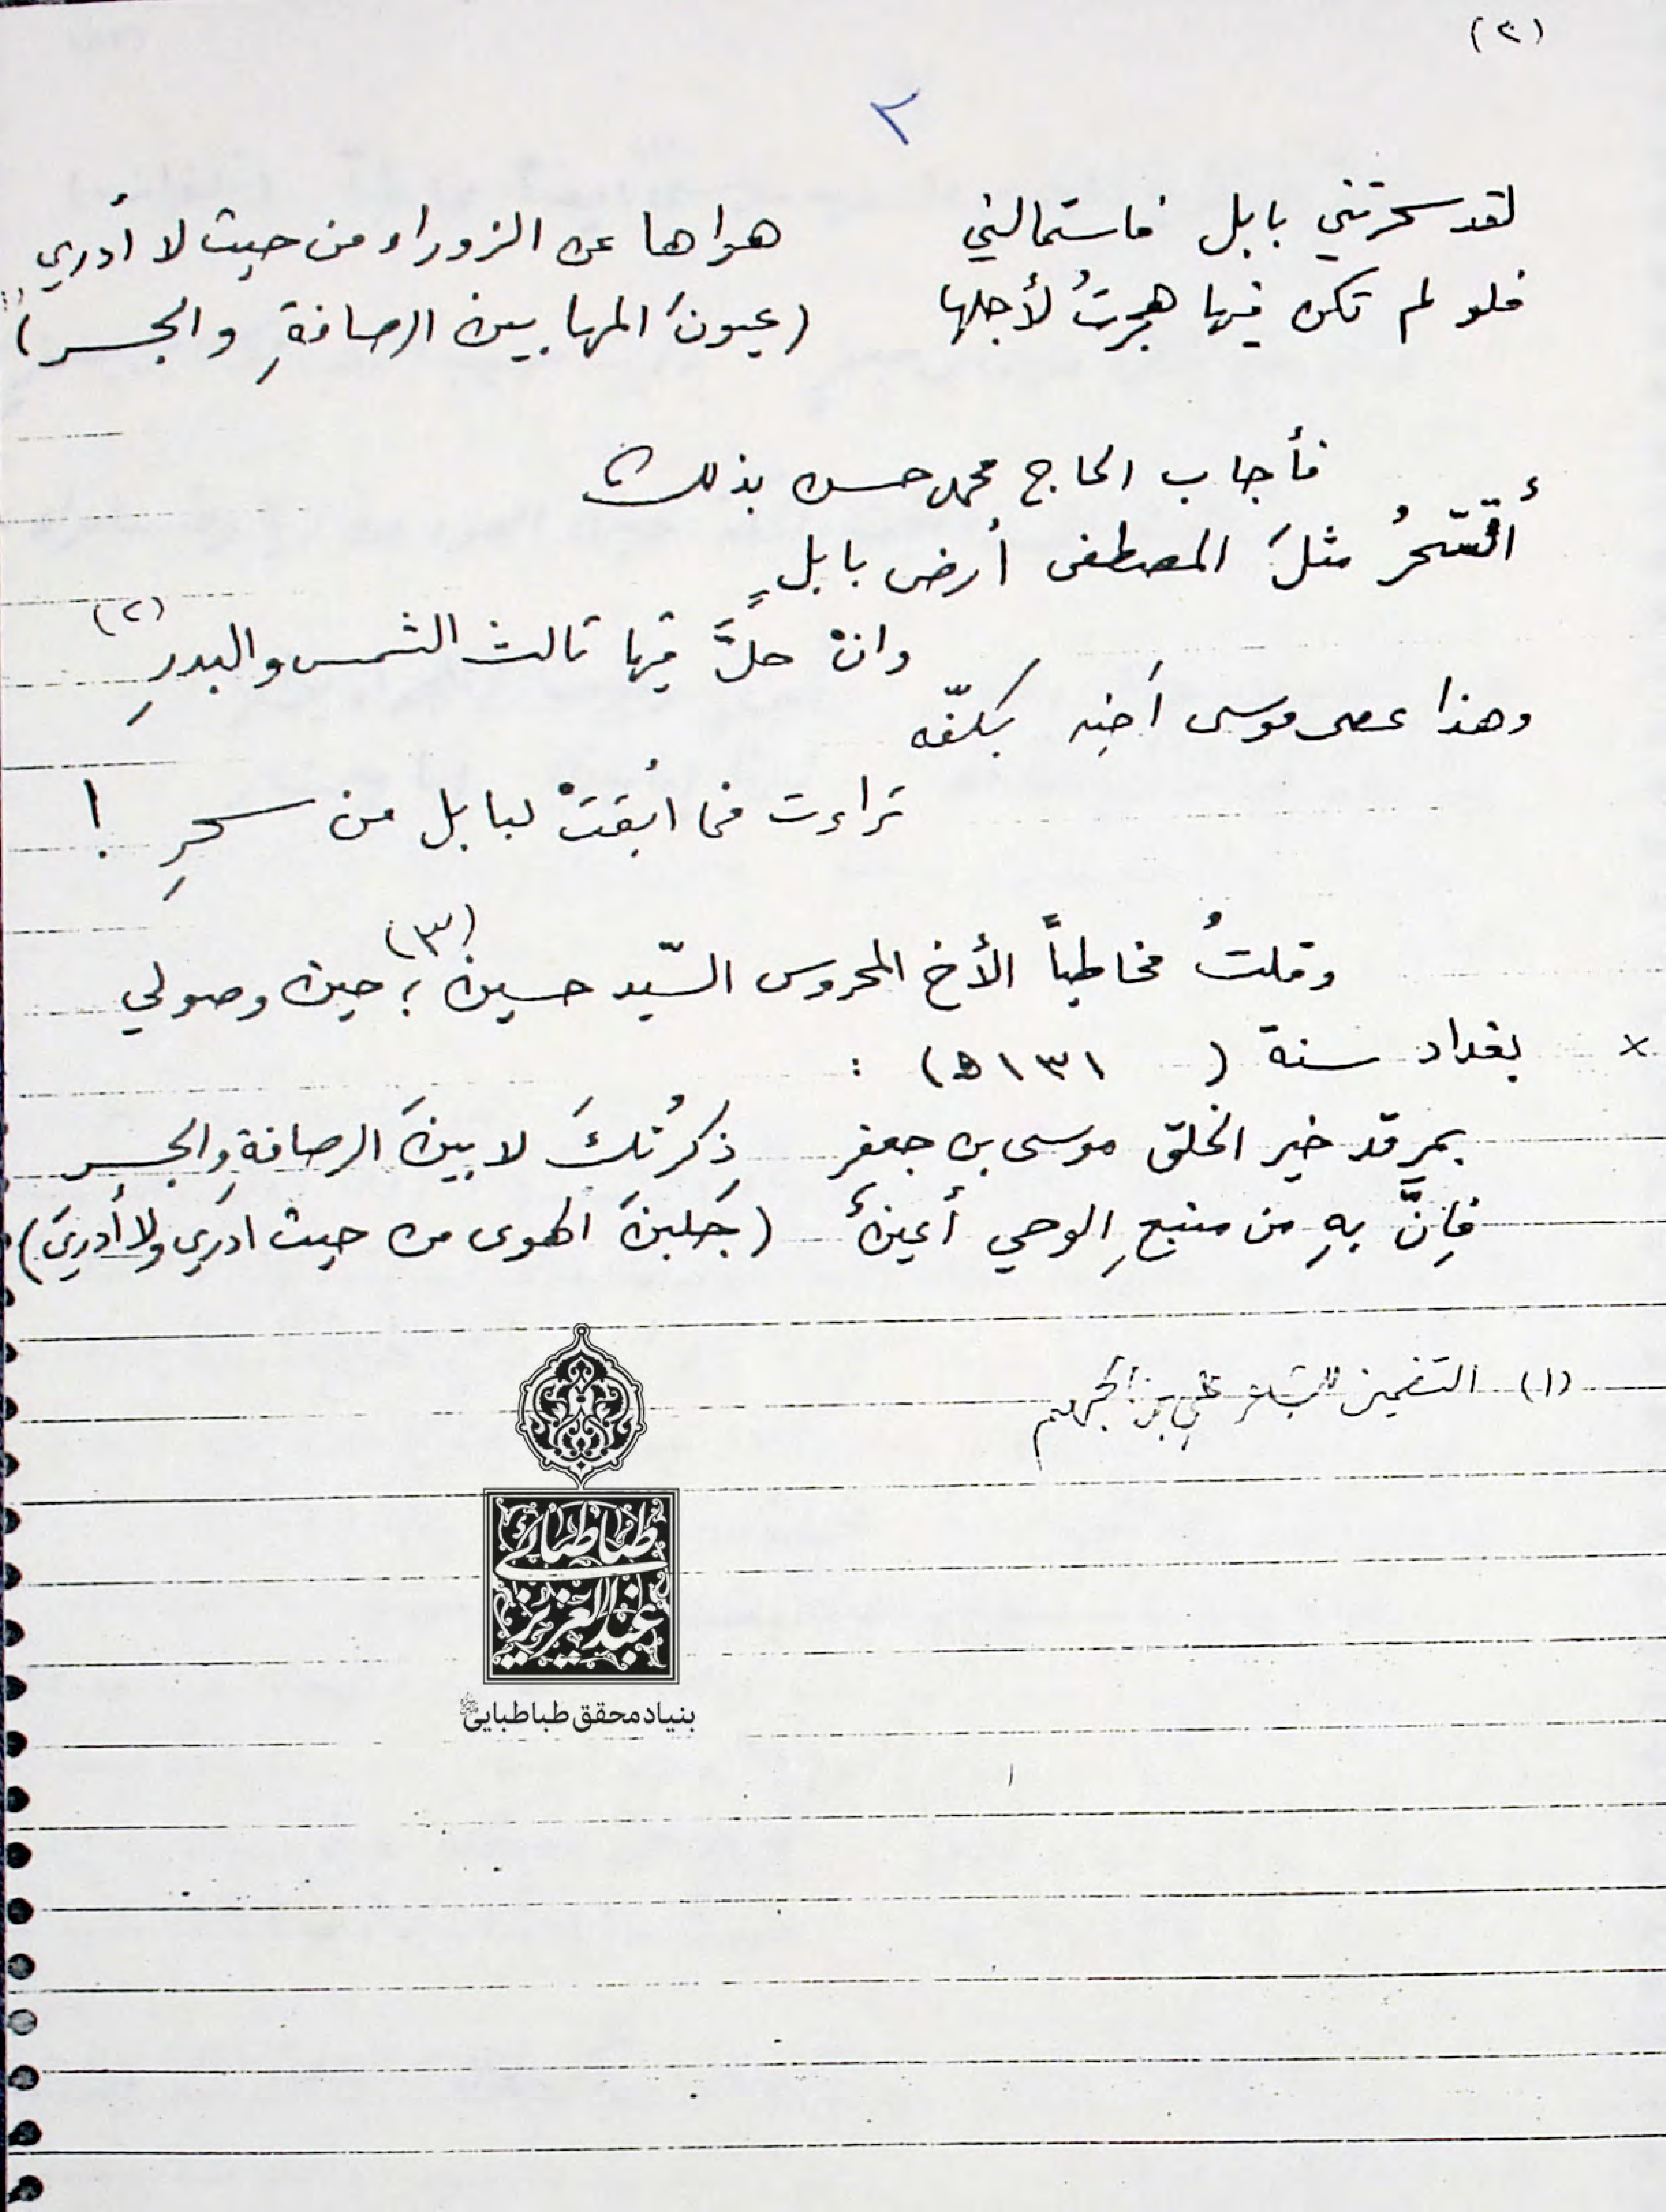 (٢)
٢
لقد سحرتني بابل فاستمالني هواها عن الزوراء من حيث لا أدري
فلو لم تكن فيها هجرتُ لأجلها (عيونَ المها بين الرصافةِ والجسر)
فأجاب الحاج محمد حسن بذلك
أتسّحرُ مثلَ المصطفى أرض بابلٍ
وانْ حلَّ فيها ثالث الشمس والبدرِ (٢)
وهذا عصى موسى أخيه بكفّه
تراءت فما أبقتْ لبابل من سحرِ !
وقلتُ مخاطباً الأخ المحروس السّيد حسين (٣) ؛ حين وصولي
× بغداد سنة ( ١٣١ ه) :
بمرقد خير الخلق موسى بن جعفر ذِكرْتُكَ لا بينَ الرصافةِ والجسر
فإنَّ بهِ من منبعِ الوحي أعينٌ (جَلبنَ الهوى من حيث ادري ولا أدري)
(١) التضمين للشاعر علي بن الجهم
طباطبائی
عبدالعزیز
بنیاد محقق طباطبایی